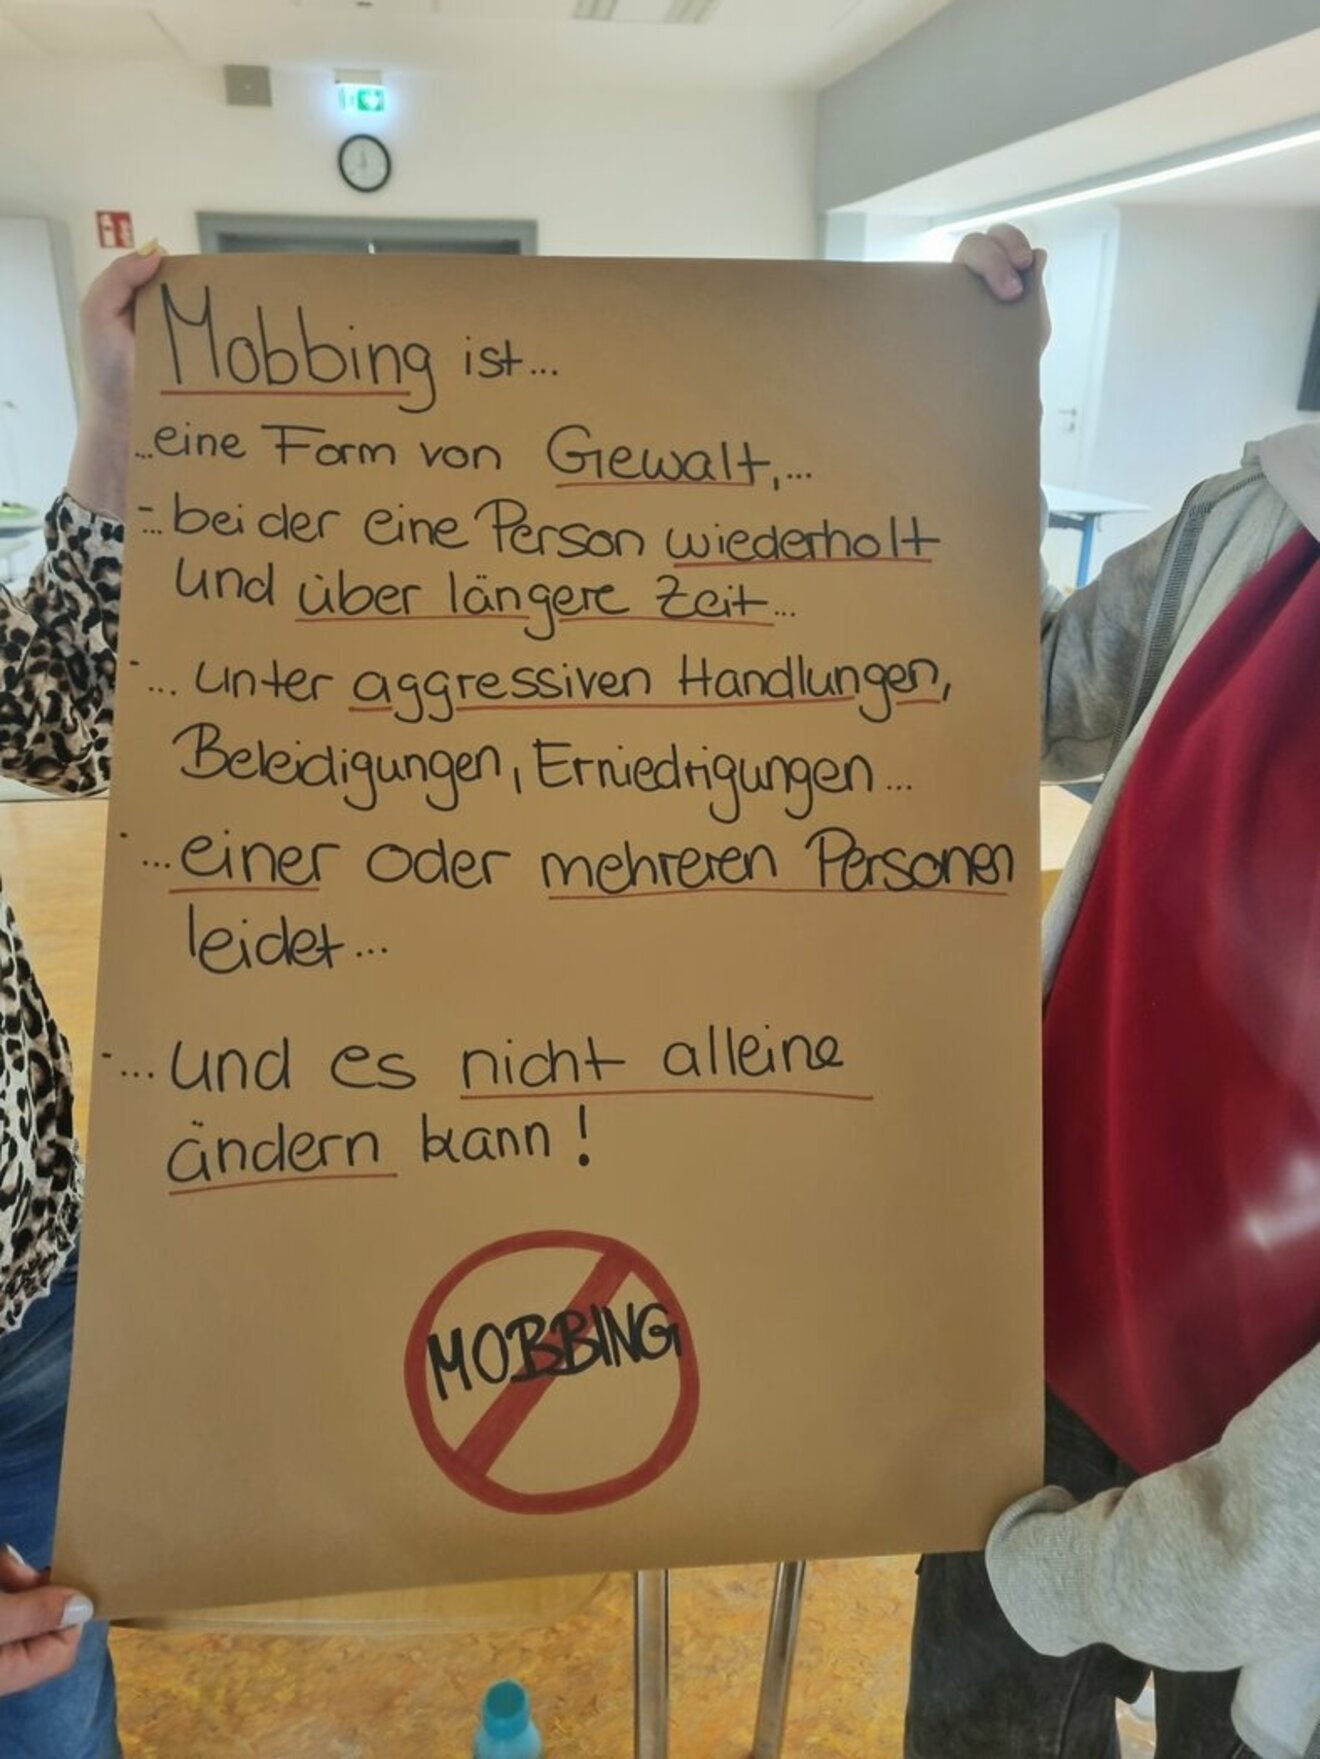 Mobbing ist...
...eine Form von Gewalt,...
-... bei der eine Person wiederholt
und über längere Zeit...
-... unter aggressiven Handlungen,
Beleidigungen, Erniedrigungen...
-... einer oder mehreren Personen
leidet...
-... und es nicht alleine
ändern kann!
MOBBING